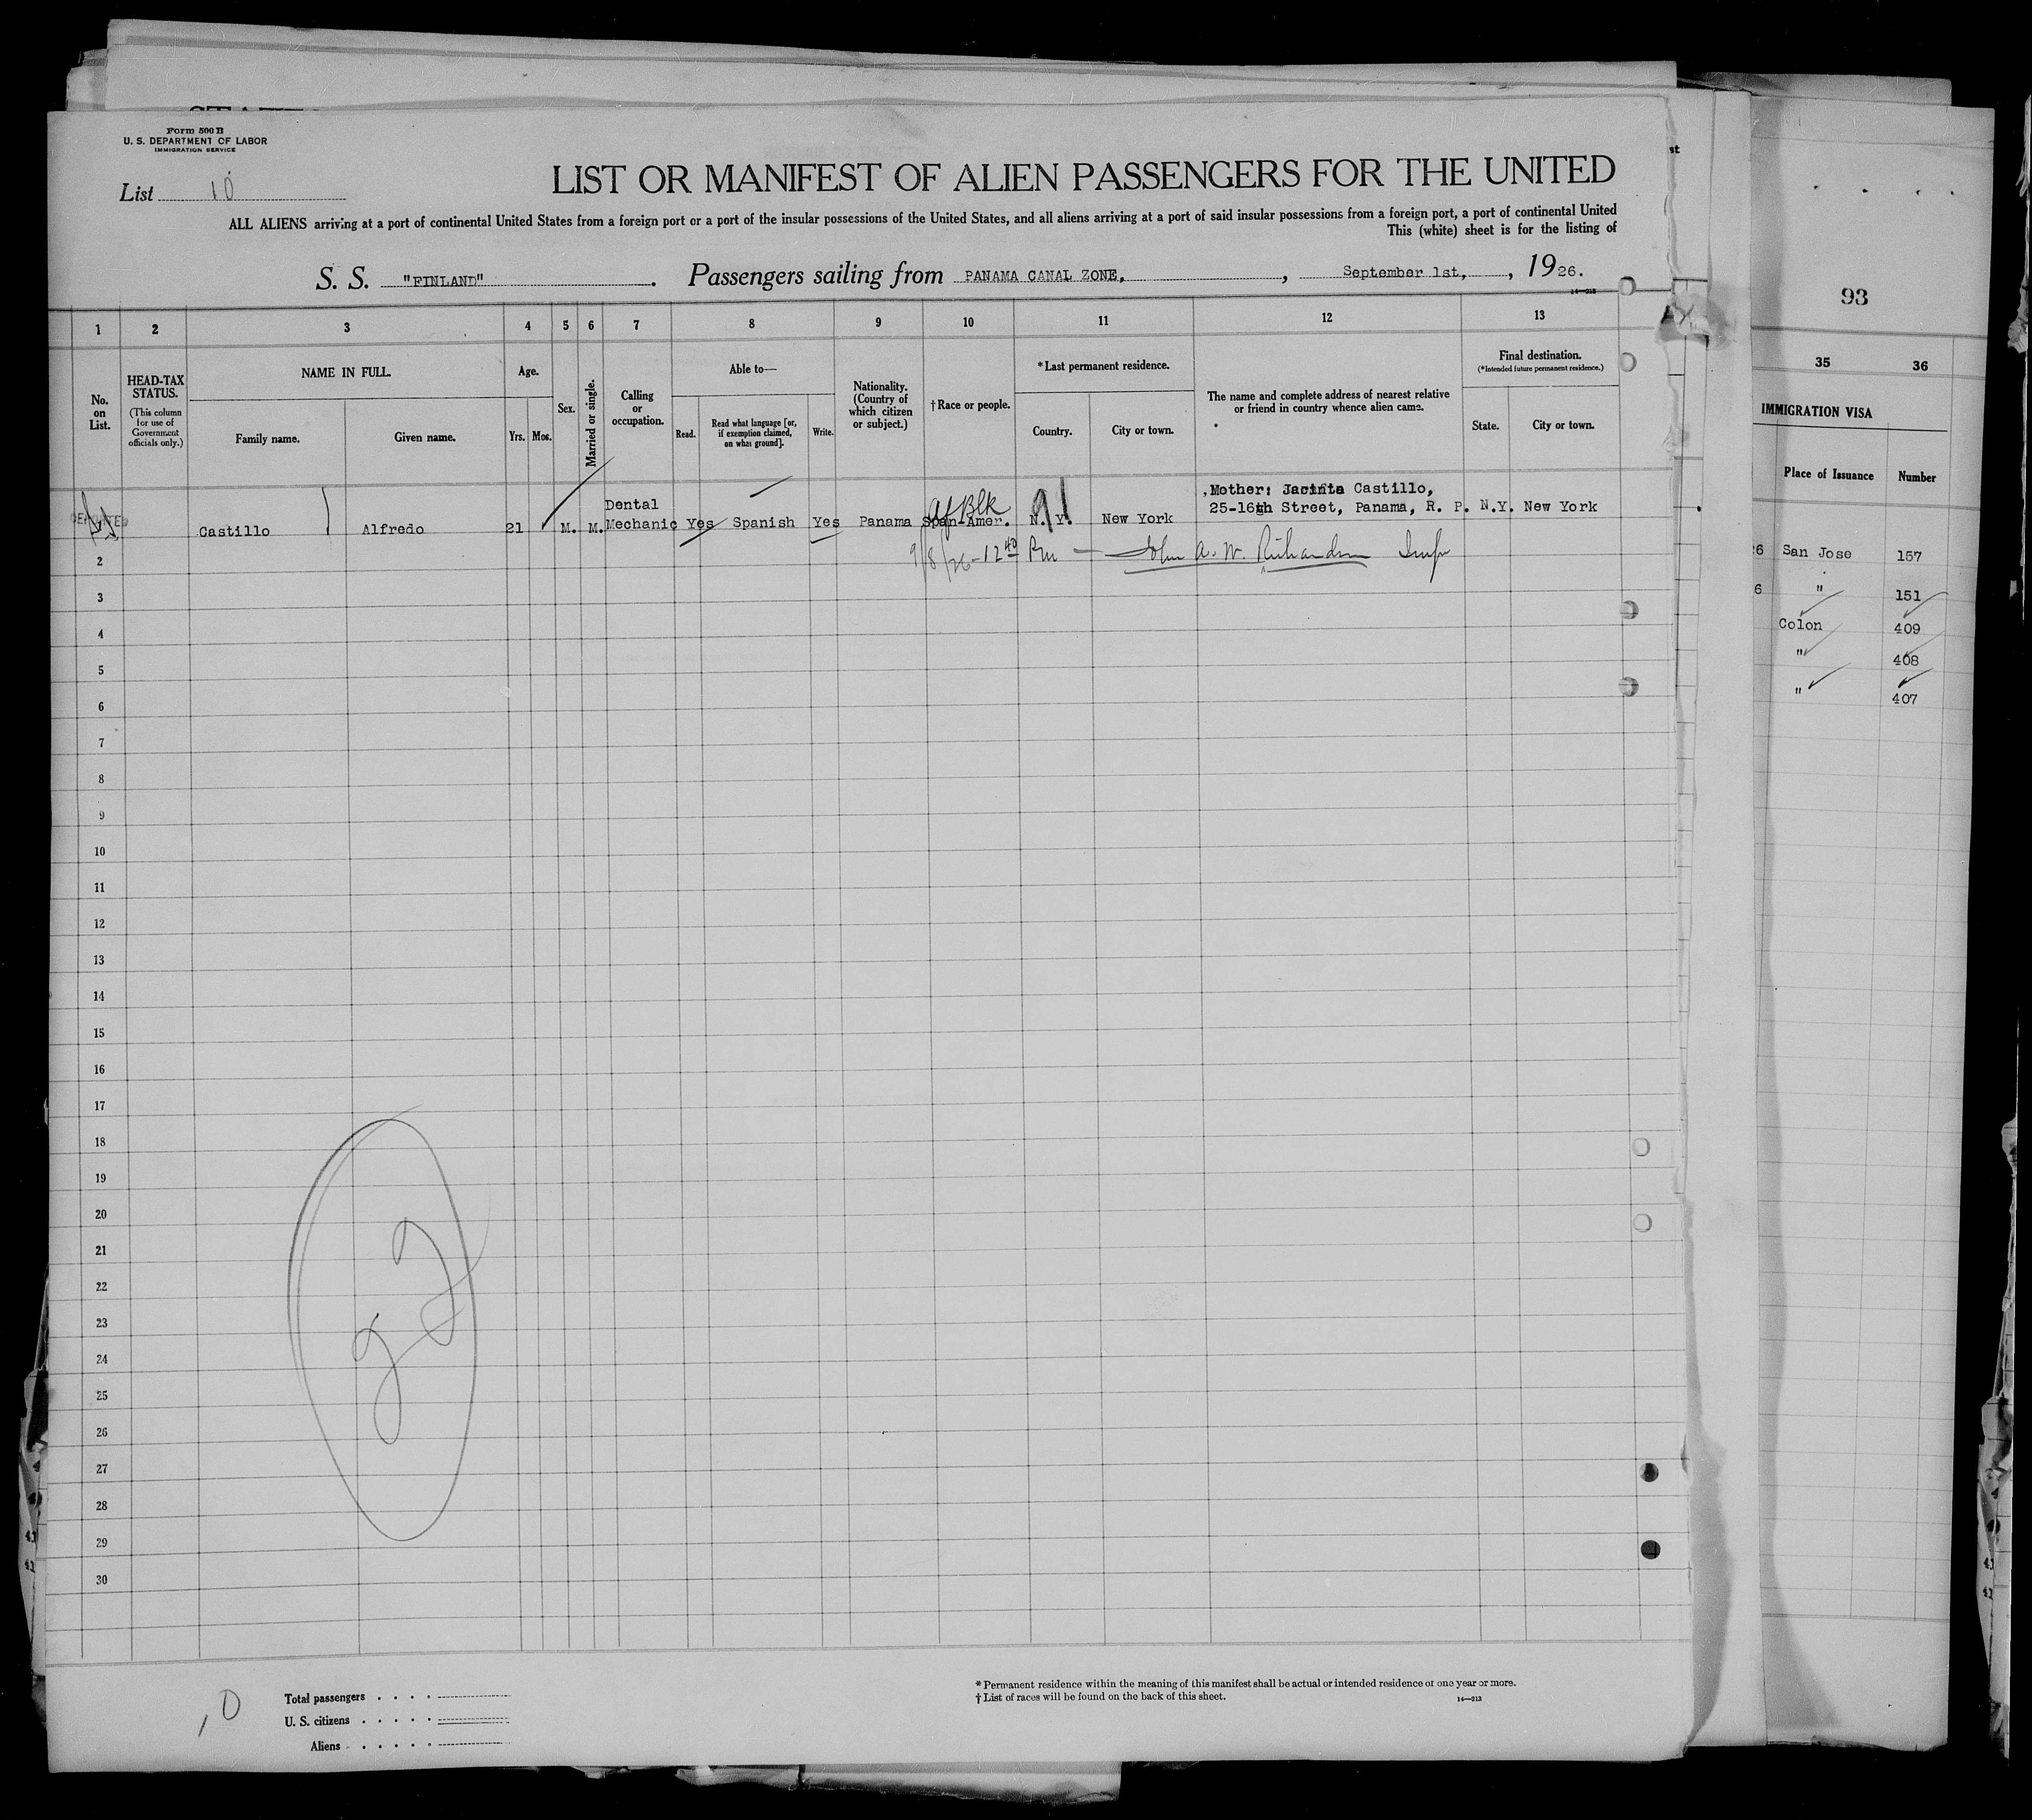 Form 500 B
U. S. DEPARTMENT OF LABOR
IMMIGRATION SERVICE
List 10
LIST OR MANIFEST OF ALIEN PASSENGERS FOR THE UNITED
ALL ALIENS arriving at a port of continental United States from a foreign port or a port of the insular possessions of the United States, and all aliens arriving at a port of said insular possessions from a foreign port, a port of continental United
This (white) sheet is for the listing of
S. S. "FINLAND". Passengers sailing from PANAMA CANAL ZONE, , September 1st, , 1926.
14—213
93
1 2 3 4 5 6 7 8 9 10 11 12 13
35 36
No. on List.
HEAD-TAX STATUS.
(This column for use of Government officials only.)
NAME IN FULL.
Family name. Given name.
Age.
Yrs. Mos.
Sex.
Married or single.
Calling or occupation.
Able to—
Read. Read what language [or, if exemption claimed, on what ground]. Write.
Nationality. (Country of which citizen or subject.)
† Race or people.
* Last permanent residence.
Country. City or town.
The name and complete address of nearest relative or friend in country whence alien came.
Final destination.
(*Intended future permanent residence.)
State. City or town.
IMMIGRATION VISA
Place of Issuance Number
DEPORTED
Castillo Alfredo 21 M. M. Dental Mechanic Yes Spanish Yes Panama Span-Amer. N. Y. New York Mother: Jacinta Castillo, 25-16th Street, Panama, R. P. N.Y. New York
Af Blk
9/8/26 - 12 40 Pm — John A. W. Richardson Insp
26 San Jose 157
6 " 151
Colon 409
" 408
" 407
2
3
4
5
6
7
8
9
10
11
12
13
14
15
16
17
18
19
20
21
22
23
24
25
26
27
28
29
30
Total passengers . . . .
U. S. citizens . . . . .
Aliens . . . . . .
* Permanent residence within the meaning of this manifest shall be actual or intended residence of one year or more.
† List of races will be found on the back of this sheet.
14—213